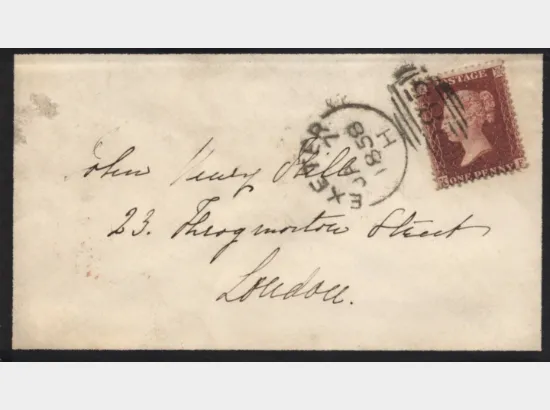 POSTAGE
ONE PENNY
EXETER
JA 7
1858
H
John Henry
23. Throgmorton Street
London.